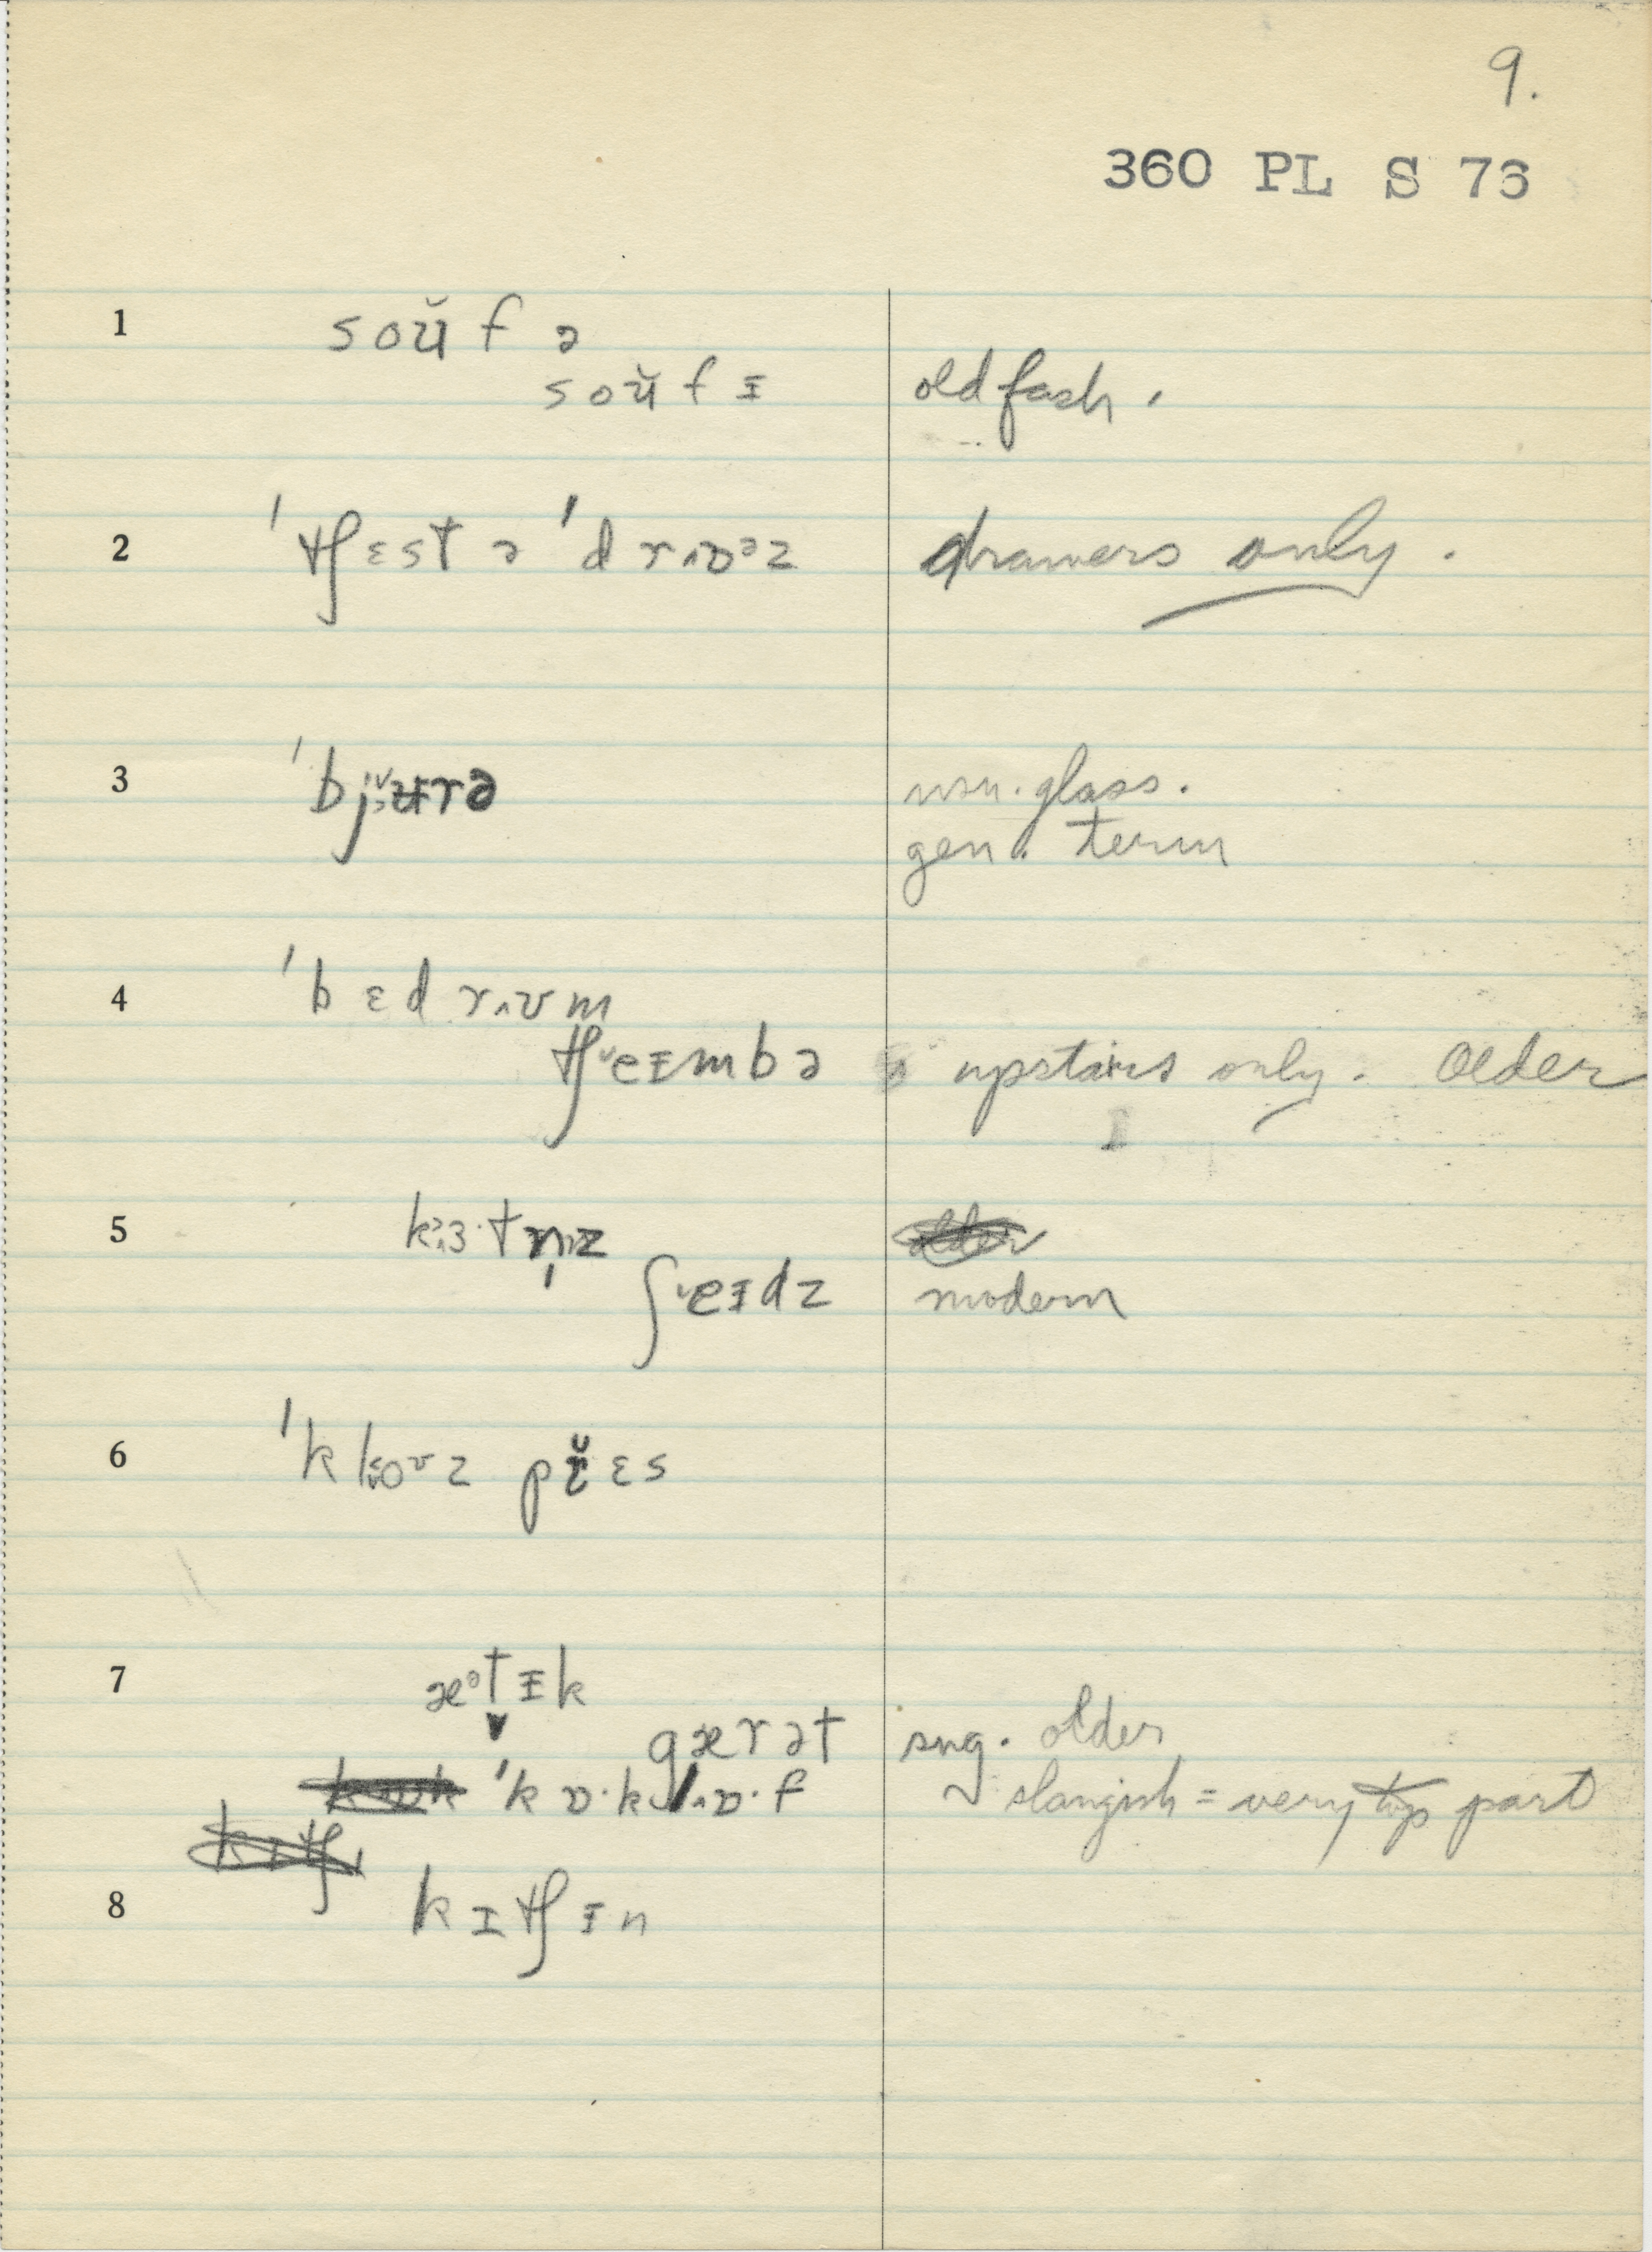 9.
360 PL S 76
1 soʊ̆ f ə
soʊ̆ f ɪ old fash.
2 ˈtʃɛst ə ˈdrɒəz drawers only.
3 ˈbjʉrə usu. glass.
gen. term
4 ˈbɛdrʌʊm
tʃeɪmbə upstairs only. Older
5 kɜ·tn̩z
ʃeɪdz modern
6 ˈkloʊz prɛs
7 æᵊtɪk
gærət sug. older
ˈkɒ·klɒ·f slangish = very top part
8 kɪtʃɪn